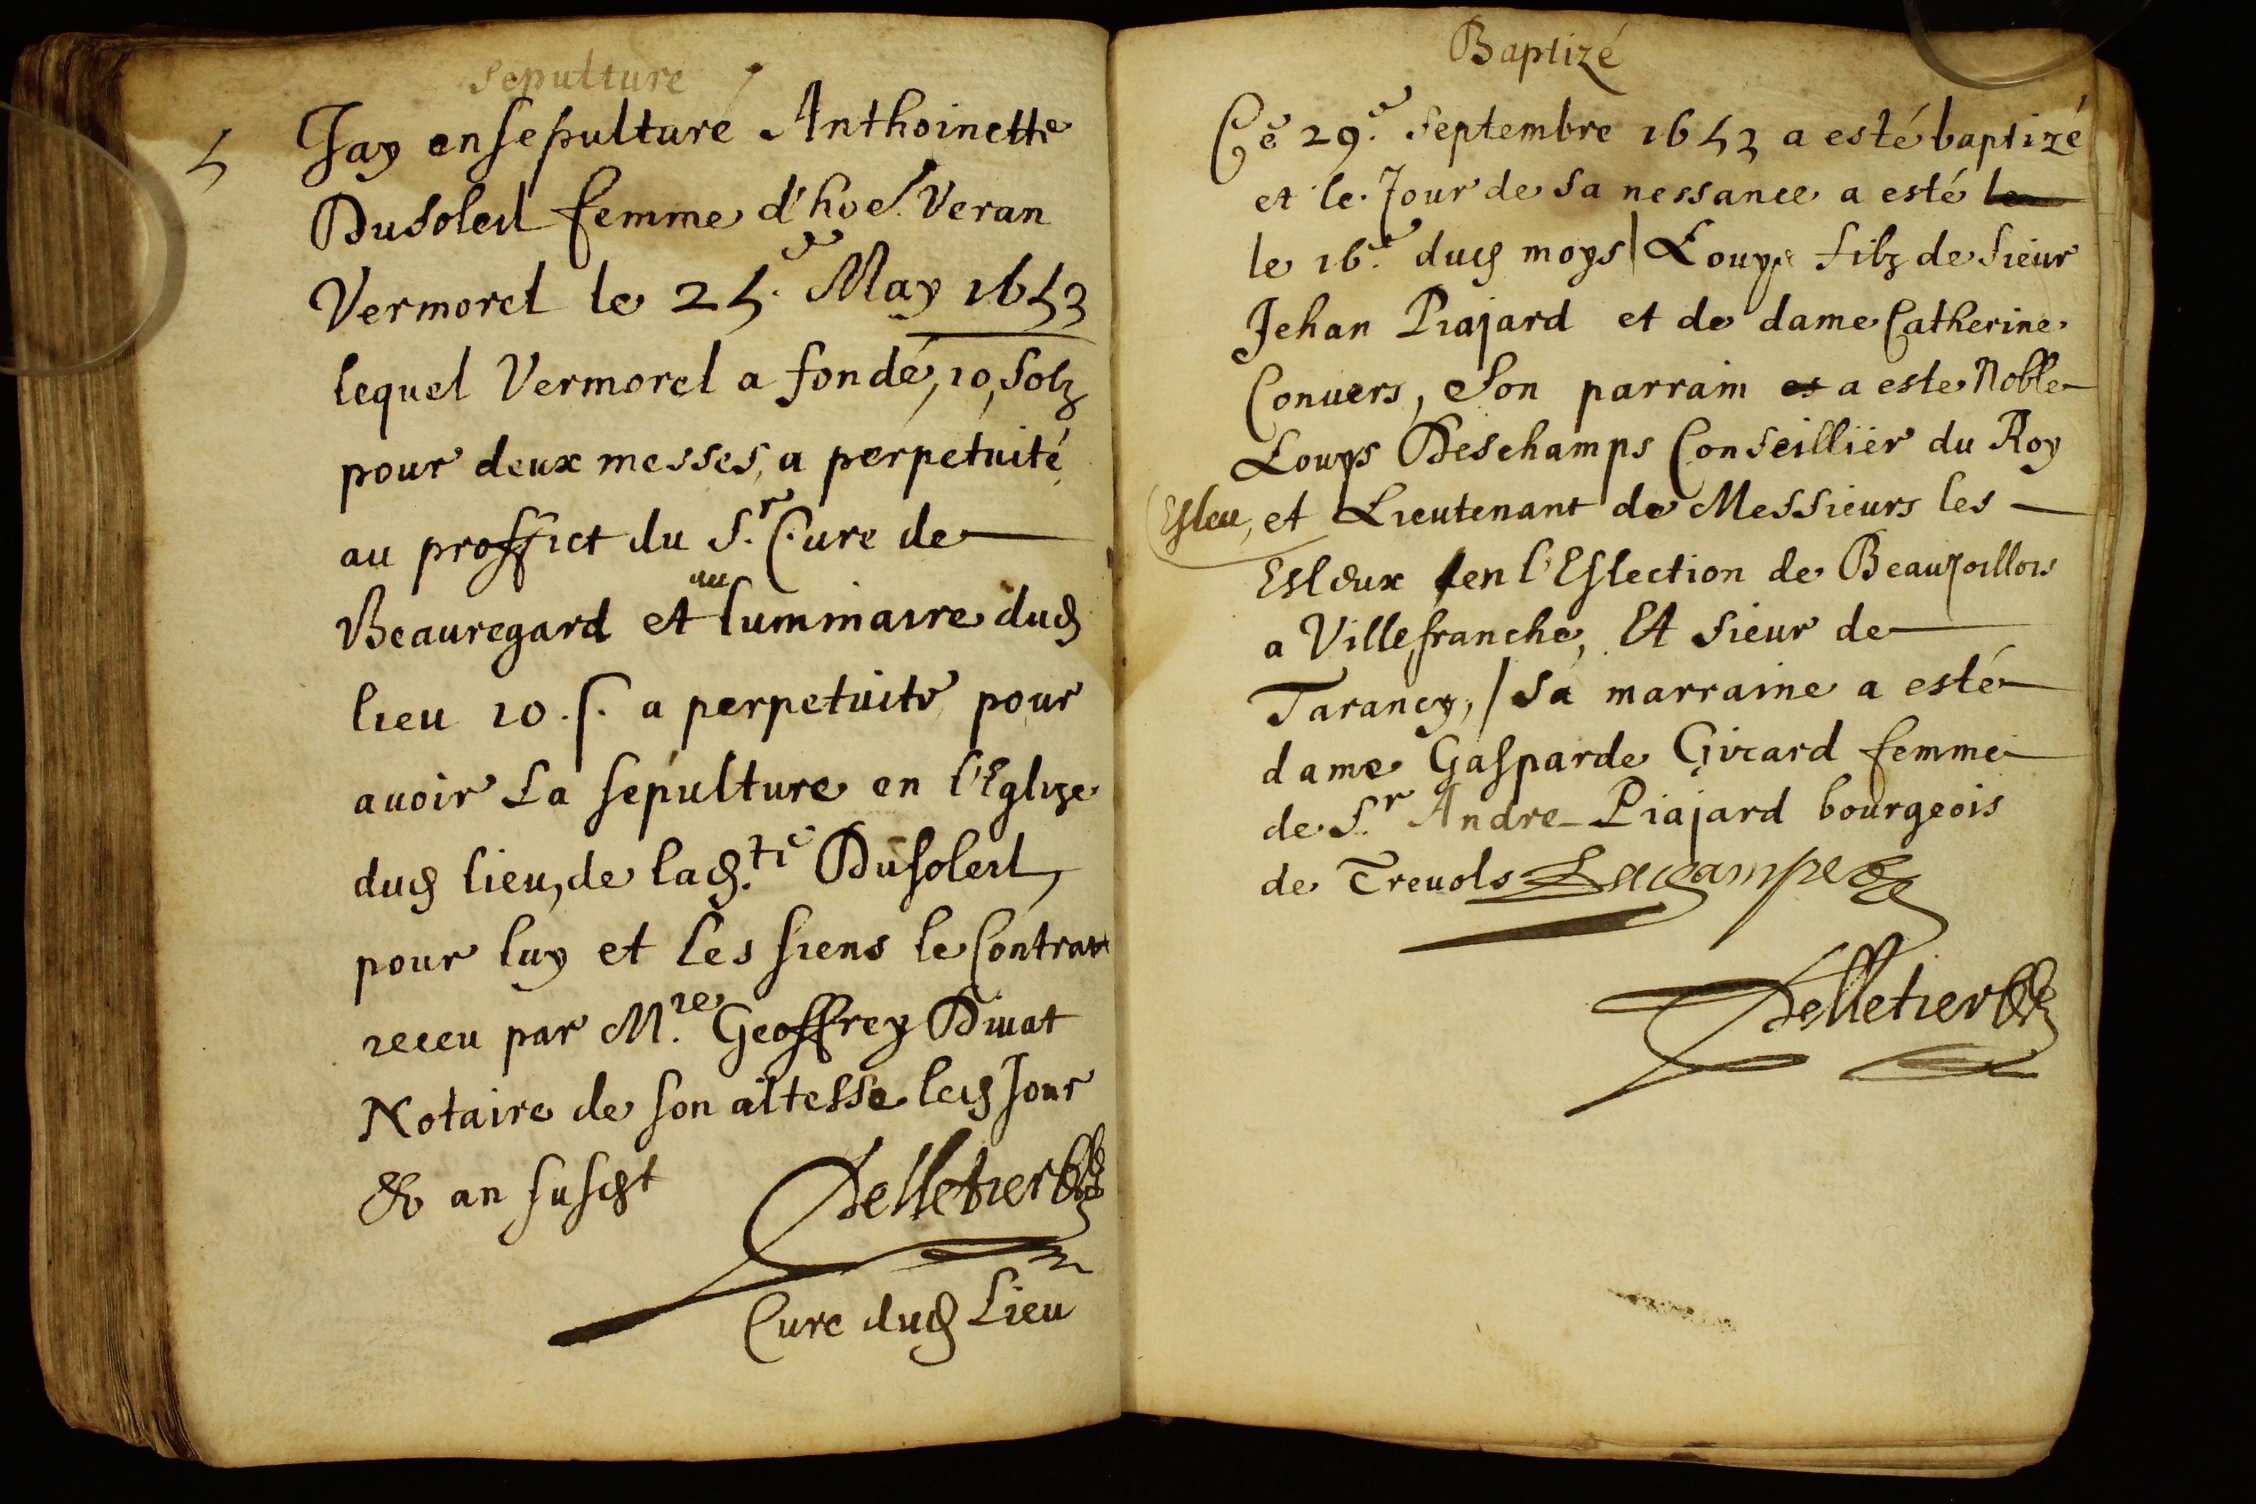 Sepulture
5 Jay ensepulturé Anthoinette
Dusoleil femme d'hoe. Veran
Vermorel le 25.e May 1653
lequel Vermorel a fondé, 10, solz
pour deux messes, a perpetuité
au proffict du S.r Cure de
Beauregard et au luminaire dud
lieu 10. s. a perpetuite pour
auoir La sepulture en l'Eglize
dud lieu, de lad.te Dusoleil,
pour luy et Les siens le Contrat
receu par M.re Geoffrey Diuat
Notaire de son altesse led Jour
& an susdt Pelletier
Cure dud Lieu
Baptizé
Ce 29.e Septembre 1653 a esté baptizé
et le Jour de sa nessance a esté le
le 16.e dud moys / Louys filz de sieur
Jehan Piajard et de dame Catherine
Conuers, Son parrain es a este Noble
Louys Deschamps Conseillier du Roy
Esleu, et Lieutenant de Messieurs les
Esleux en l'Eslection de Beaujoillois
a Villefranche, Et sieur de
Tarancy, / sa marraine a esté
dame Gasparde Girard femme
de S.r Andre Piajard bourgeois
de Treuols Lacampe
Pelletier